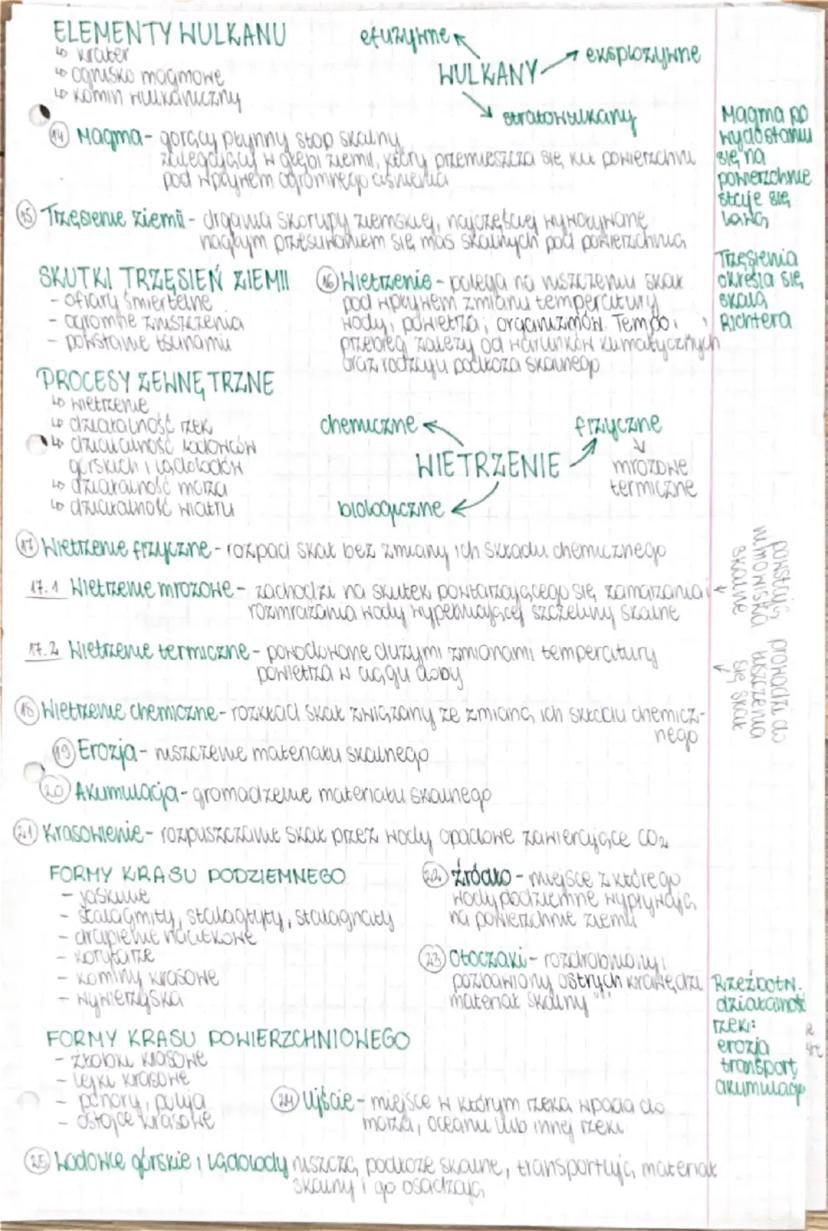 ELEMENTY WULKANU
↳ krater
↳ ognisko magmowe
↳ komin wulkaniczny
efuzywne
eksplozywne
WULKANY
stratowulkany
14 Magma - gorący płynny stop skalny
zalegający w głębi ziemi, który przemieszcza się ku powierzchni
pod wpływem ogromnego ciśnienia
Magma po
wydostaniu
się na
powierzchnie
staje się
lawą
15 Trzęsienie ziemi - drgania skorupy ziemskiej, najczęściej wywoływane
nagłym przesunięciem się mas skalnych pod powierzchnią
Trzęsienia
określa się
skalą
Richtera
SKUTKI TRZĘSIEŃ ZIEMII
- ofiary śmiertelne
- ogromne zniszczenia
- powstanie tsunamii
16 Wietrzenie - polega na niszczeniu skał
pod wpływem zmianu temperatury
wody, powietrza i organizmów. Tempo i
przebieg zależy od warunków klimatycznych
oraz rodzaju podłoża skalnego
PROCESY ZEWNĘTRZNE
↳ wietrzenie
↳ działalność rzek
↳ działalność lodowców
górskich i lądolodów
↳ działalność morza
↳ działalność wiatru
chemiczne
fizyczne
WIETRZENIE
mrozowe
termiczne
biologiczne
17 Wietrzenie fizyczne - rozpad skał bez zmiany ich składu chemicznego
17.1 Wietrzenie mrozowe - zachodzi na skutek powtarzającego się zamarzania i
rozmrażania wody wypełniającej szczeliny skalne
powstają
rumowiska
skalne
17.2 Wietrzenie termiczne - powodowane dużymi zmianami temperatury
powietrza w ciągu doby
prowadzi do
łuszczenia
się skał
18 Wietrzenie chemiczne - rozkład skał związany ze zmianą ich składu chemicz-
nego
19 Erozja - niszczenie materiału skalnego
20 Akumulacja - gromadzenie materiału skalnego
21 Krasowienie - rozpuszczanie skał przez wody opadowe zawierające CO₂
FORMY KRASU PODZIEMNEGO
- jaskinie
- stalagmity, stalaktyty, stalagnaty
- draperie naciekowe
- korytarze
- kominy krasowe
- wywierzyska
22 Źródło - miejsce z którego
wody podziemne wypływają
na powierzchnie ziemi
23 Otoczaki - rozdrobniony i
pozbawiony ostrych krawędzi
materiał skalny
Rzeźbotw.
działalność
rzeki:
erozja
transport
akumulacja
FORMY KRASU POWIERZCHNIOWEGO
- żłobki krasowe
- lejki krasowe
- ponory, polja
- ostańce krasowe
24 Ujście - miejsce w którym rzeka wpada do
morza, oceanu lub innej rzeki
25 Lodowce górskie i Lądolody niszczą podłoże skalne, transportują materiał
skalny i go osadzają